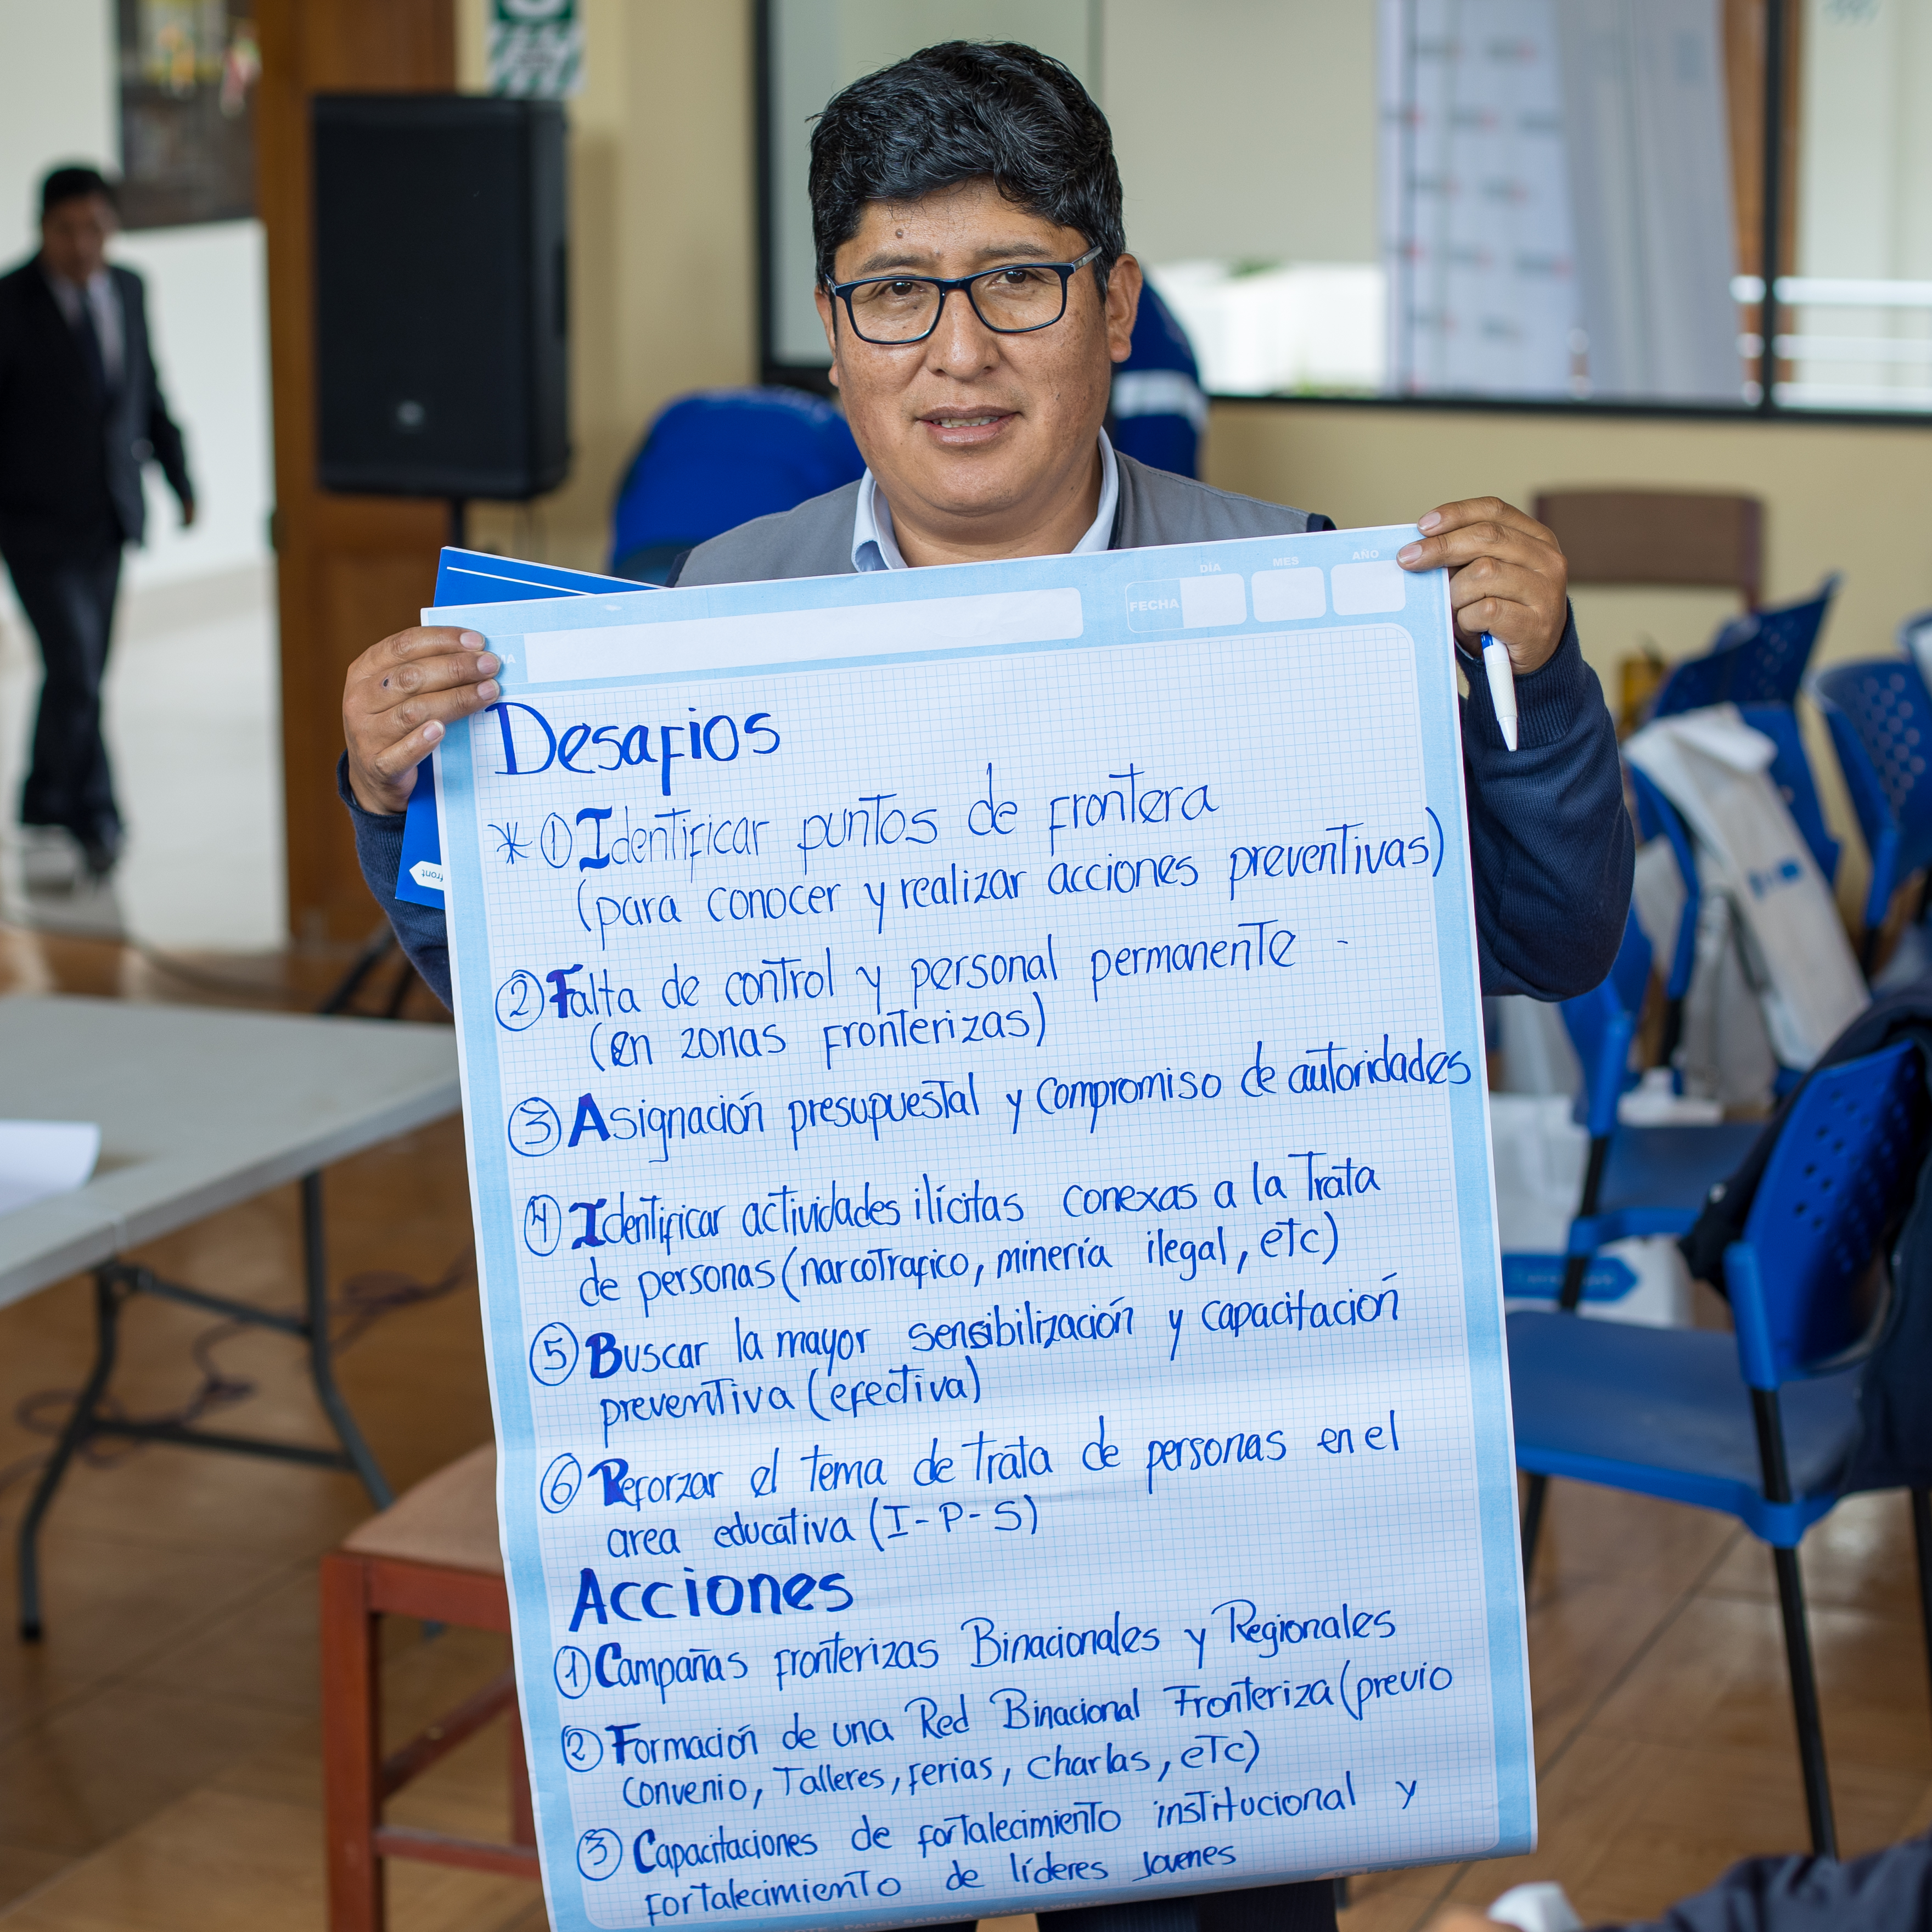 DÍA MES AÑO
FECHA
Desafios
* ① Identificar puntos de frontera
(para conocer y realizar acciones preventivas)
② Falta de control y personal permanente -
(en zonas fronterizas)
③ Asignación presupuestal y compromiso de autoridades
④ Identificar actividades ilícitas conexas a la Trata
de personas (narcotrafico, minería ilegal, etc)
⑤ Buscar la mayor sensibilización y capacitación
preventiva (efectiva)
⑥ Reforzar el tema de trata de personas en el
area educativa (I-P-S)
Acciones
① Campañas fronterizas Binacionales y Regionales
② Formación de una Red Binacional Fronteriza (previo
Convenio, Talleres, ferias, charlas, etc)
③ Capacitaciones de fortalecimiento institucional y
fortalecimiento de líderes jovenes